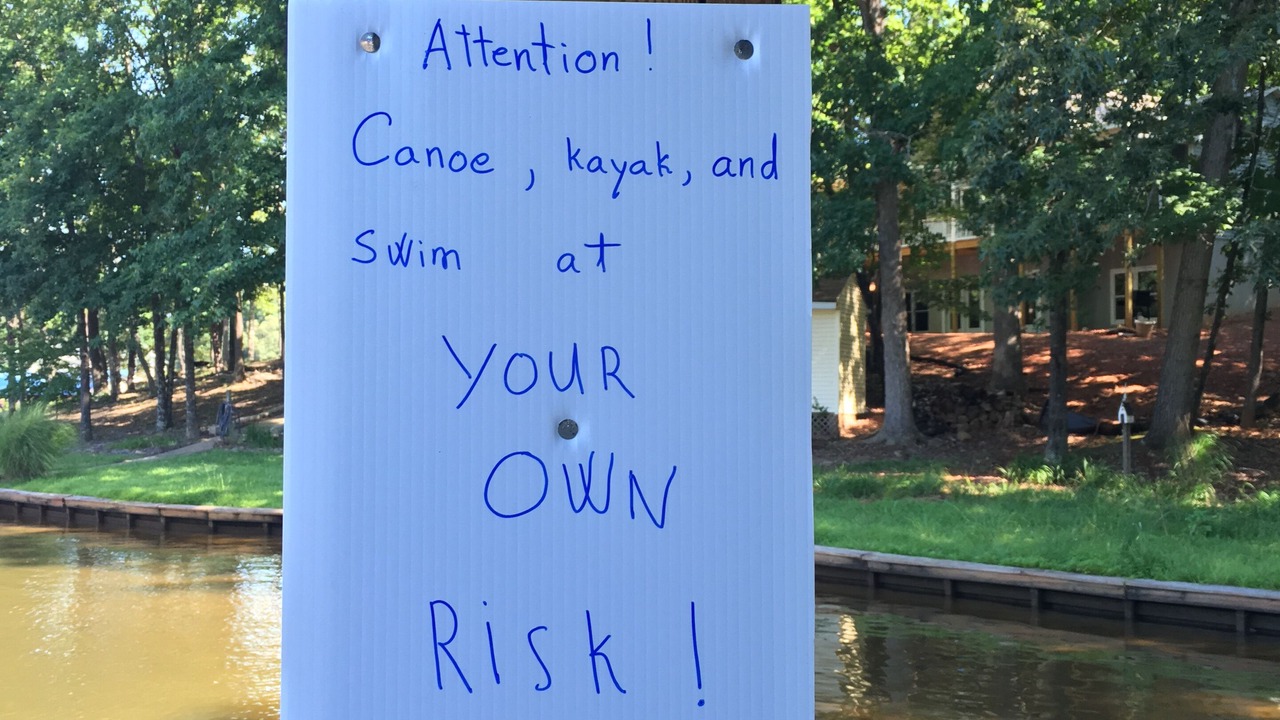 Attention!
Canoe, kayak, and
Swim at
YOUR
OWN
Risk!